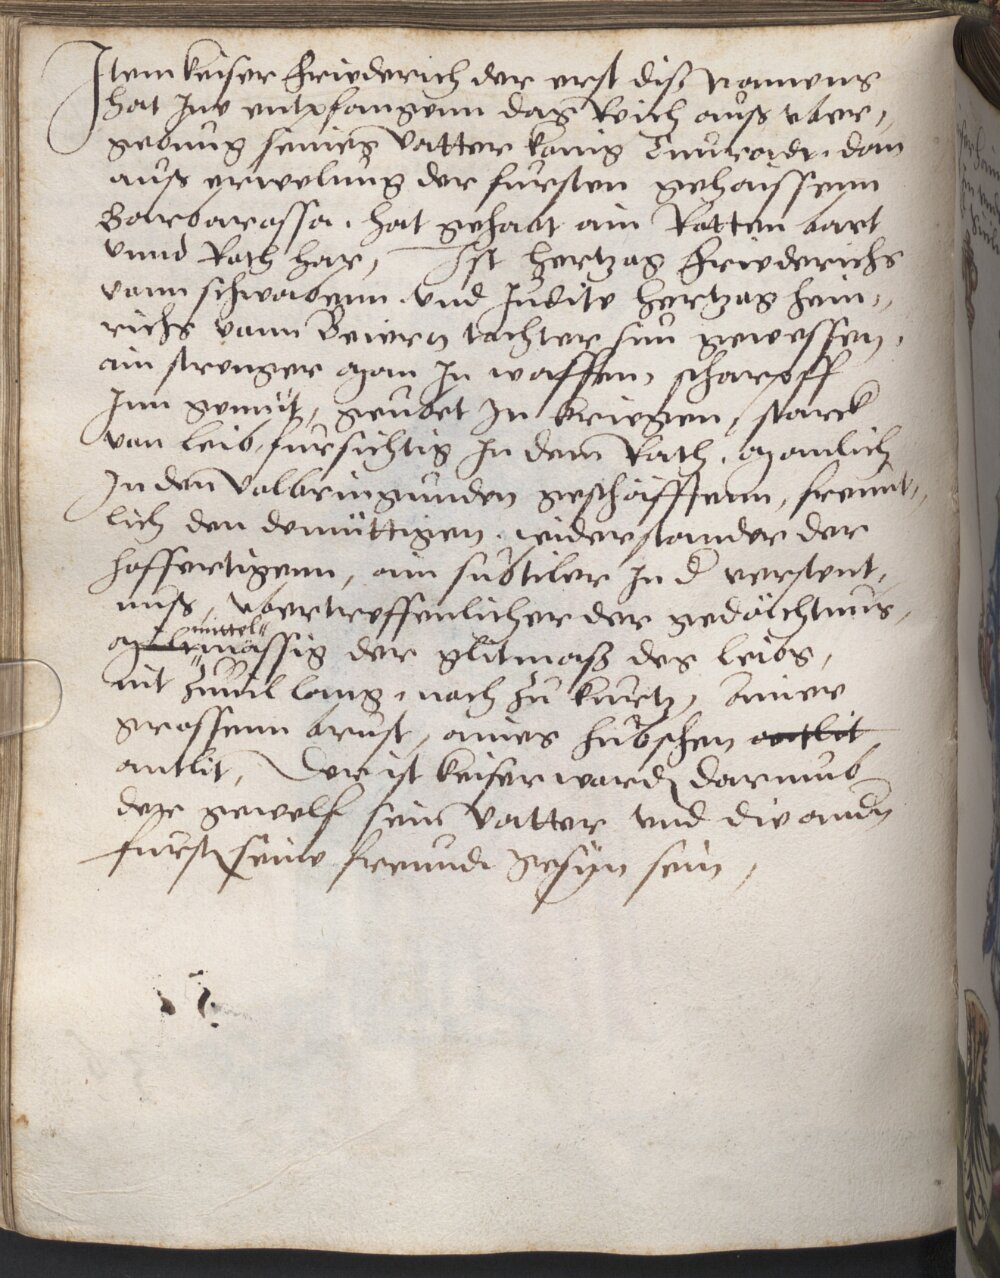 Item keiser Friederich der erst diß namens
hat Inn entpfangenn das Reich auß vber,
gebung seines vatter kunig Cunradt, dan
auß erwelung der fursten gehaissenn
Barbarossa. hat gehabt ain Rotten bart
vnnd Roth har, Ist hertzog Friederichs
vonn schwabenn vnd Judite hertzog hein,,
richs vonn Beiern tochter sun gewessen,
ain strenger man In waffen, scharpff
Inn gemüt, geubet In kriegen, starck
von leib, fursichtig In dem Rath, manlich
In den volbringunden geschäfftenn, freunt,,
lich den demüttigen, widerstander der
hoffertigenn, ain subtiler In d verstent,
nuß, vbertreffenlicher der gedächtnus,
mittel
mässig der glitmaß des leibs,
nit zuvil lang, noch zu kurtz, ainer
grossenn brust, aines hubschen antlit
antlit, Der ist keiser word darumb
der gewelf seins vatter vnd die andn
furst seine freundt gesyn sein,